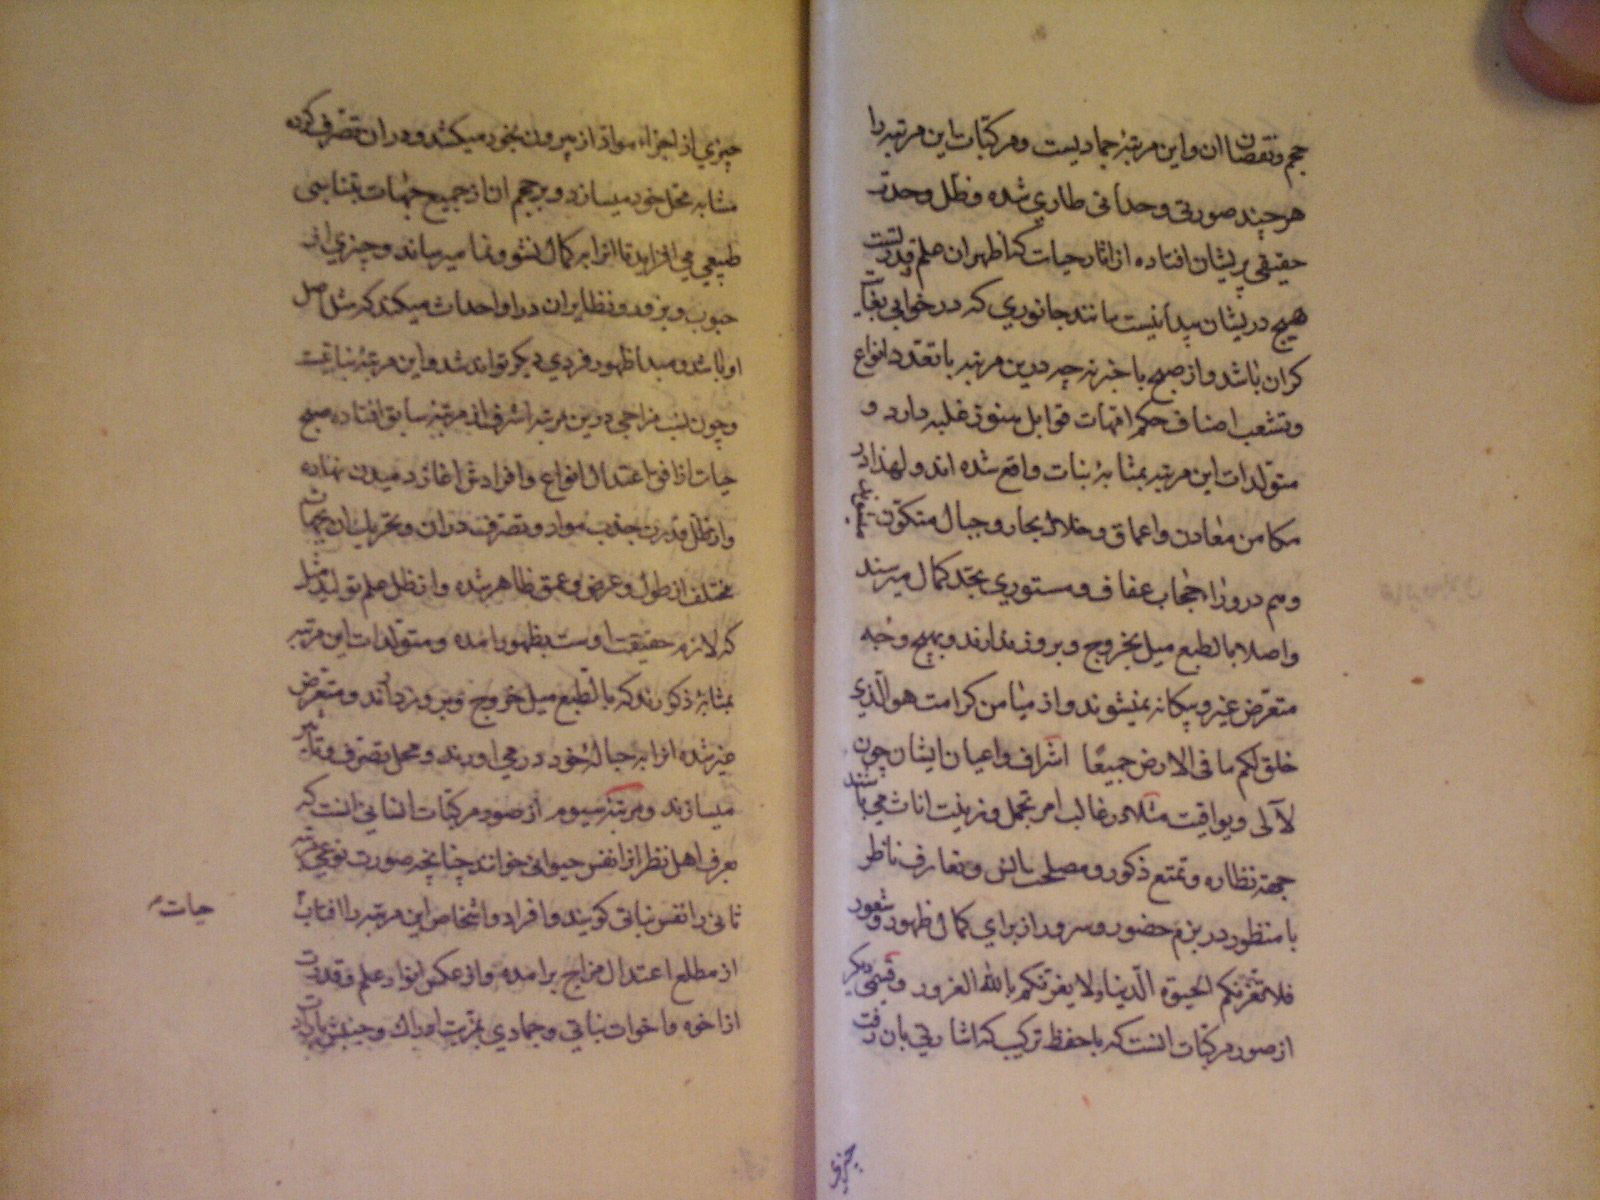 حجم و نقصان ان و این مرتبهٔ جمادیست و مرکبات این مرتبه را
هر چند صورتی وحدانی طاری شده و ظل وحدت
حقیقی بریشان افتاده از اثار حیات که اظهر ان علم و قدرتست
هیچ دریشان پیدا نیست مانند جانوری که در خوابی بغایت
کران باشد و از صبح با خبر نه چه درین مرتبه با تعدد انواع
و تشعب اصناف حکم امهات قوابل هنوز غلبه دارد و
متولدات این مرتبه بمثابهٔ بنات واقع شده اند و لهذا در
مکامن معادن و اعماق و خلال بحار و جبال متکون
و هم در وراء حجاب عفاف و مستوری بحد کمال میرسند
و اصلا بالطبع میل بخروج و بروز ندارند و بهیچ وجه
متعرض غیر و بیکانه نمیشوند و از میامن کرامت هو الذی
خلق لکم ما فی الارض جمیعًا اشراف و اعیان ایشان چون
لآلی و یواقیت مثلا در غالب امر تجمل و زینت اناث می باشند
جهة نظاره و تمتع ذکور و مصلحت بالش و تعارف ناظر
با منظور در بزم حضور و سرور از برای کمال ظهور و شعور
فلا تغرنکم الحیوة الدنیا و لا یغرنکم بالله الغرور و قسمی دیکر
از صور مرکبات انست که با حفظ ترکیب که اشارتی بان رفت
چیزی
چیزی از اجزاء مواد از بیرون بخود میکشد و در ان تصرف کرده
مشابه محل خود میسازد و بر حجم ان از جمیع جهات بتناسبی
طبیعی می افزاید تا انرا بکمال نشو و نما میرساند و چیزی از
حبوب و بزور و نظایر ان درو احداث میکند که مثل اصل
او باشد و مبدا ظهور فردی دیکر تواند شد و این مرتبهٔ نباتیست
و چون نسب مزاجی درین مرتبه اشرف از مرتبهٔ سابق افتاده صبح
حیات از افق اعتدال انواع و افرادش اغاز دمیدن نهاده
و از ظل قدرت جذب مواد و تصرف در ان و تحریک ان بجهات
مختلف از طول و عرض و عمق ظاهر شده و از ظل علم تولید مثل
که لازم حقیقت اوست بظهور امده و متولدات این مرتبه
بمثابهٔ ذکورند که بالطبع میل خروج و بروز دارند و متعرض
غیر شده انرا بحبالهٔ خود در می اورند و محل تصرف و تاثیر
میسازند و مرتبهٔ سیوم از صور مرکبات انسانی انست که
بعرف اهل نظر انرا نفس حیوانی خوانند چنانچه صورت نوعی مرتبه
ثانی را نفس نباتی کویند و افراد و اشخاص این مرتبه را افتاب
حیات
از مطلع اعتدال مزاج برامده و از عکس انوار علم و قدرت
از اخوه و اخوات نباتی و جمادی بمزیت ادراک و جنبش